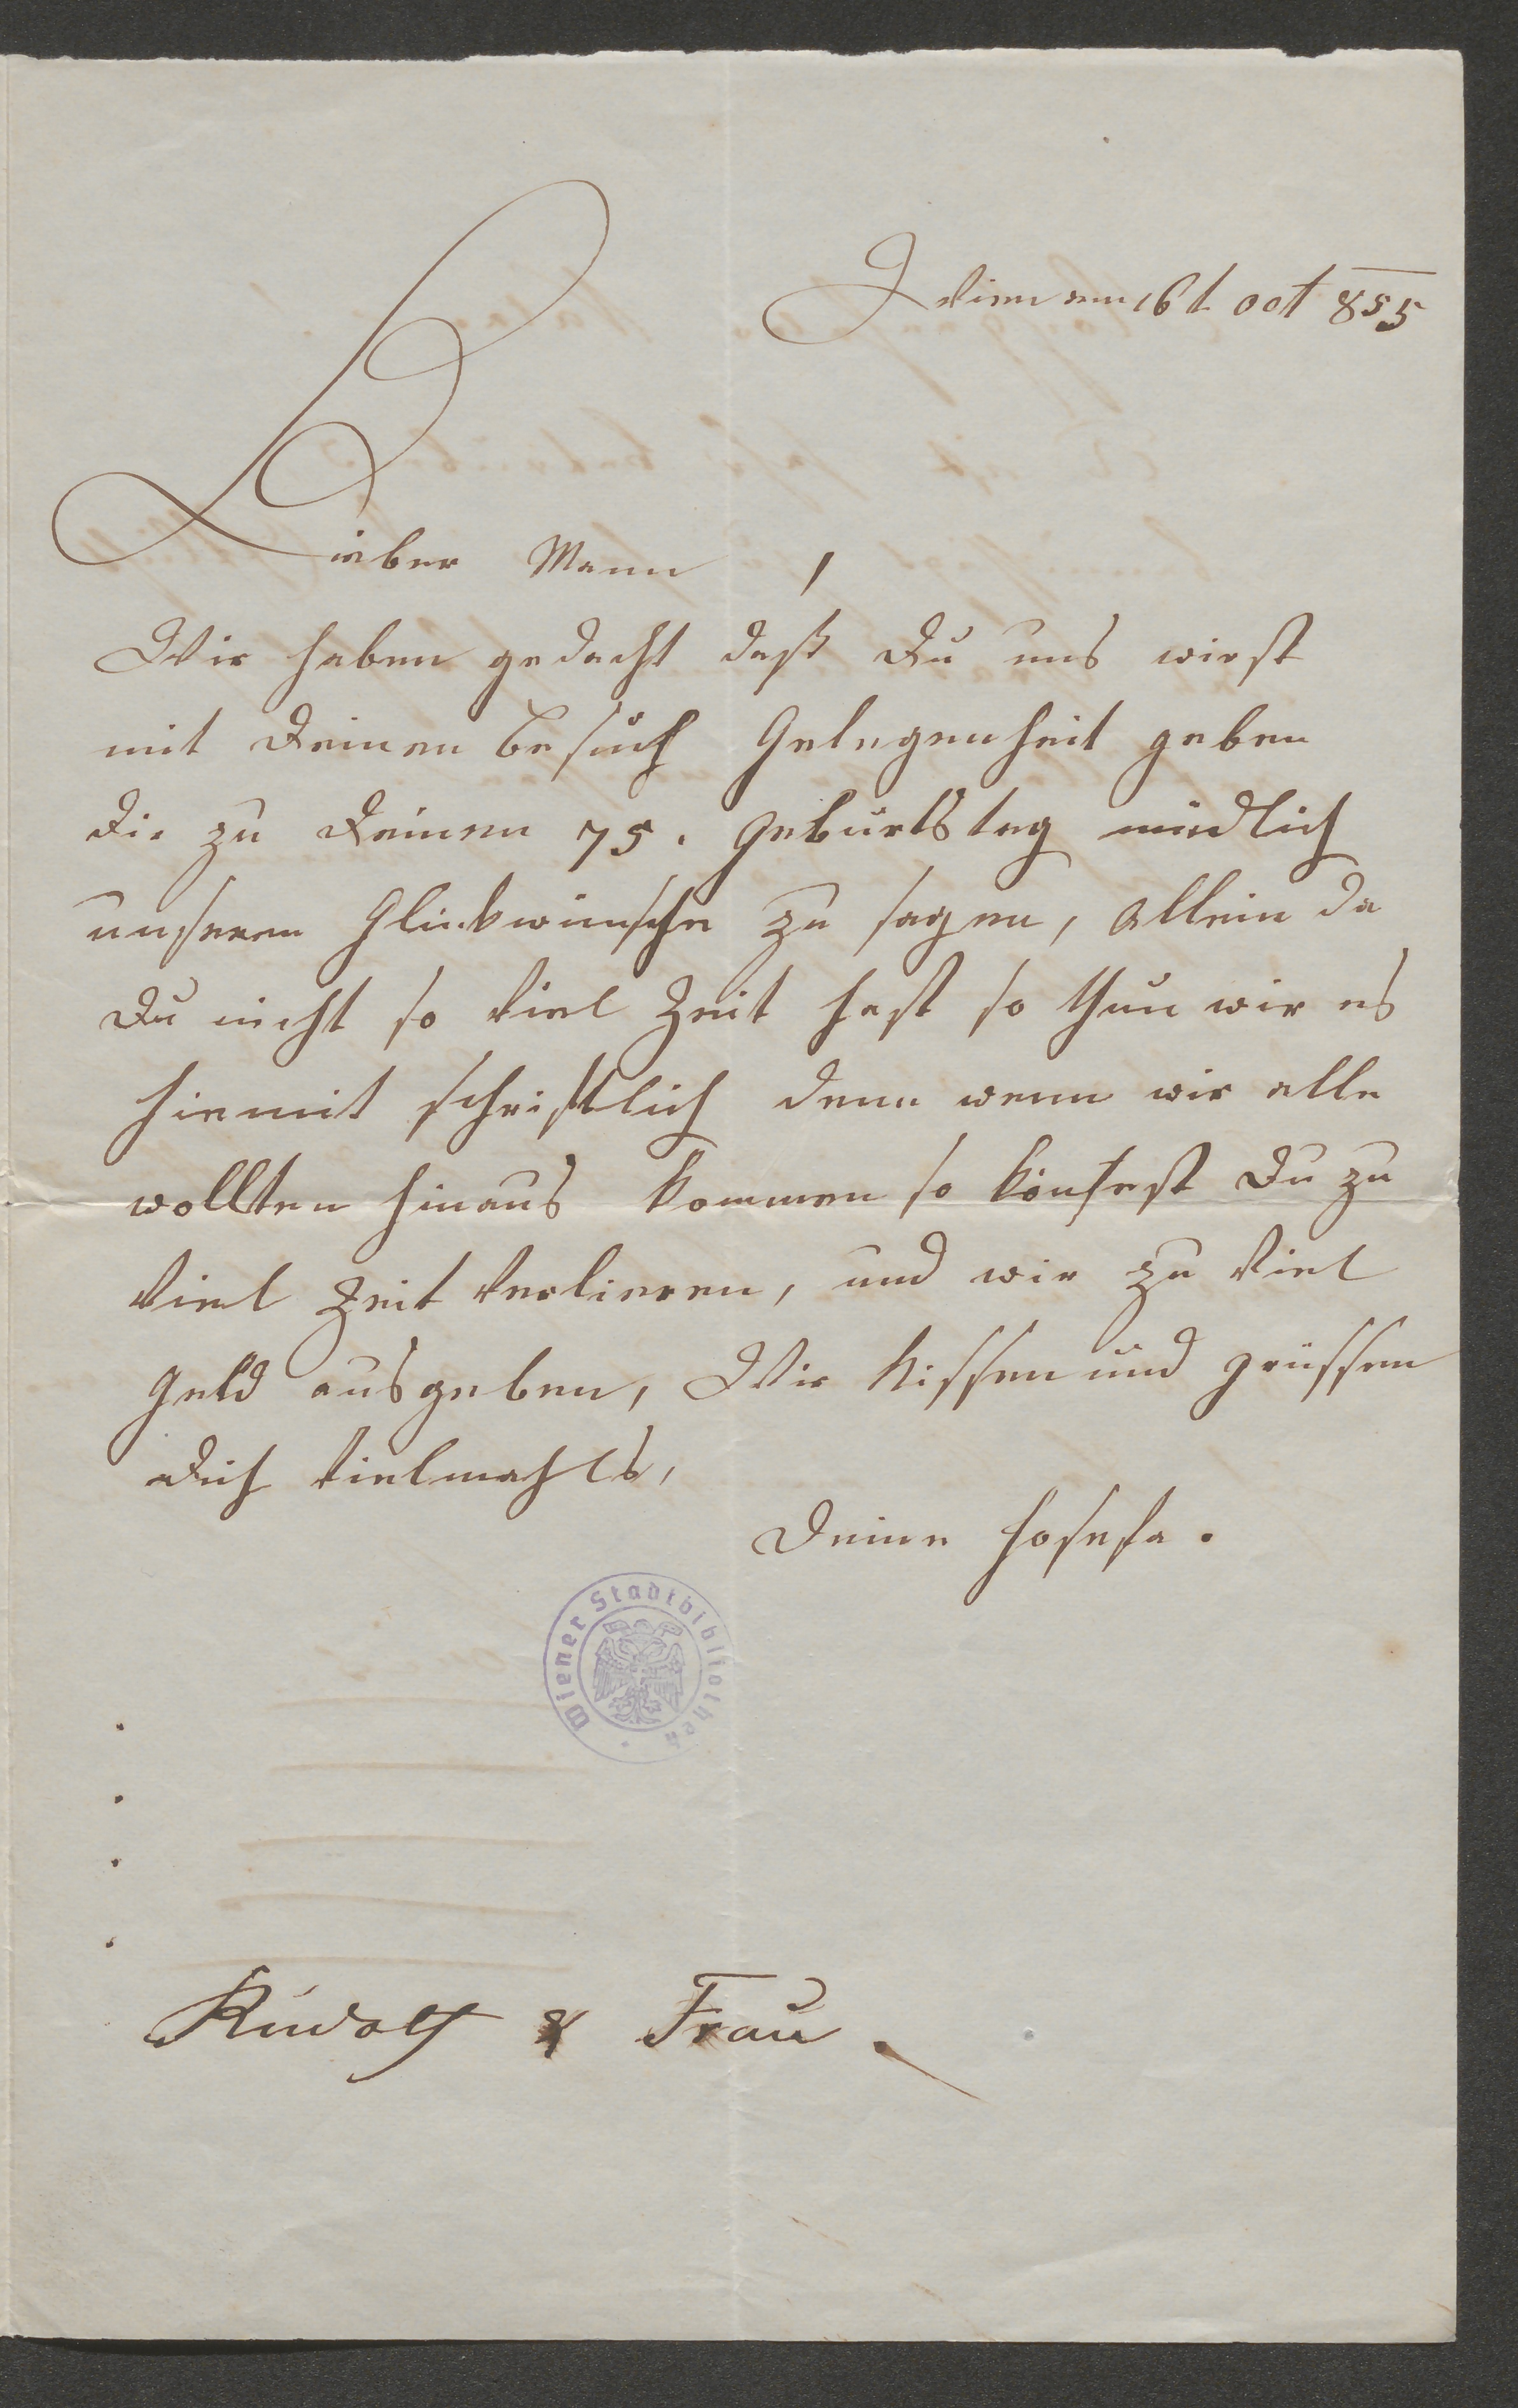 Wien am 16t oct 855
Lieber Mann !
Wir haben gedacht daß Du uns wirst
mit Deinen Besuch Gelegenheit geben
Dir zu Deinen 75. Geburtstag mündlich
unseren Glückwünsche zu sagen, Allein da
Du nicht so viel Zeit hast so thun wir es
hiemit schriftlich denn wenn wir alle
wollten hinaus kommen so Du zu
viel Zeit verlieren, und wir zu viel
Geld ausgeben, Wir kissen und grüssen
Dich vielmahls,
Deine Josefa.
Wiener Stadtbibliothek
Rudolf & Frau.